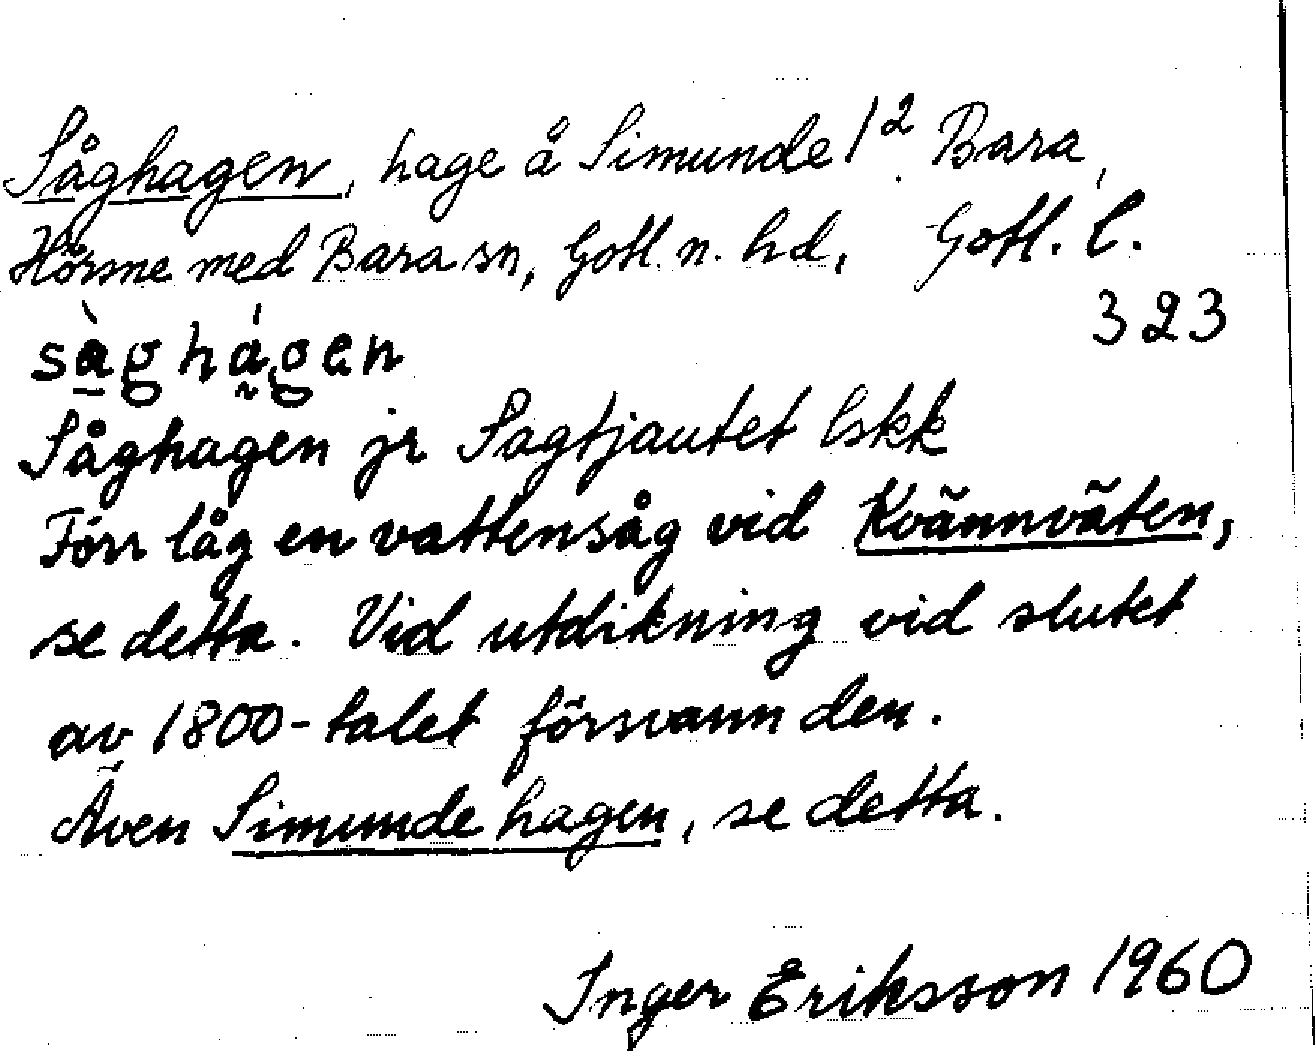 Såghagen, hage å Simunde 1² Bara,
Hörsne med Bara sn, Gotl. n. hd, Gotl. l.
323
sàghágen
Såghagen jr Sagtjautet Eskk
Förr låg en vattensåg vid Kvännväten,
se detta. Vid utdikning vid slutet
av 1800-talet försvann den.
Även Simunde hagen, se detta.
Inger Eriksson 1960